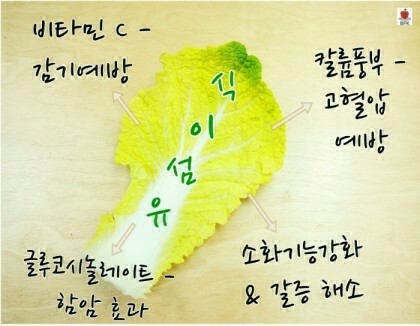 비타민 C -
감기예방
칼륨풍부 -
고혈압
예방
식
이
섬
유
글루코시놀레이트 -
함암 효과
소화기능강화
& 갈증 해소